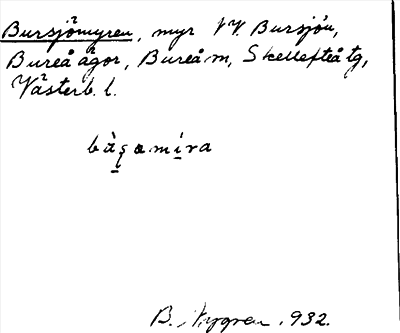 Bursjömyren, myr NV. Bursjön,
Bureå ägor, Bureå m, Skellefteå tg,
Västerb. l.
bàs̨amíra
B. Nygren. 1932.